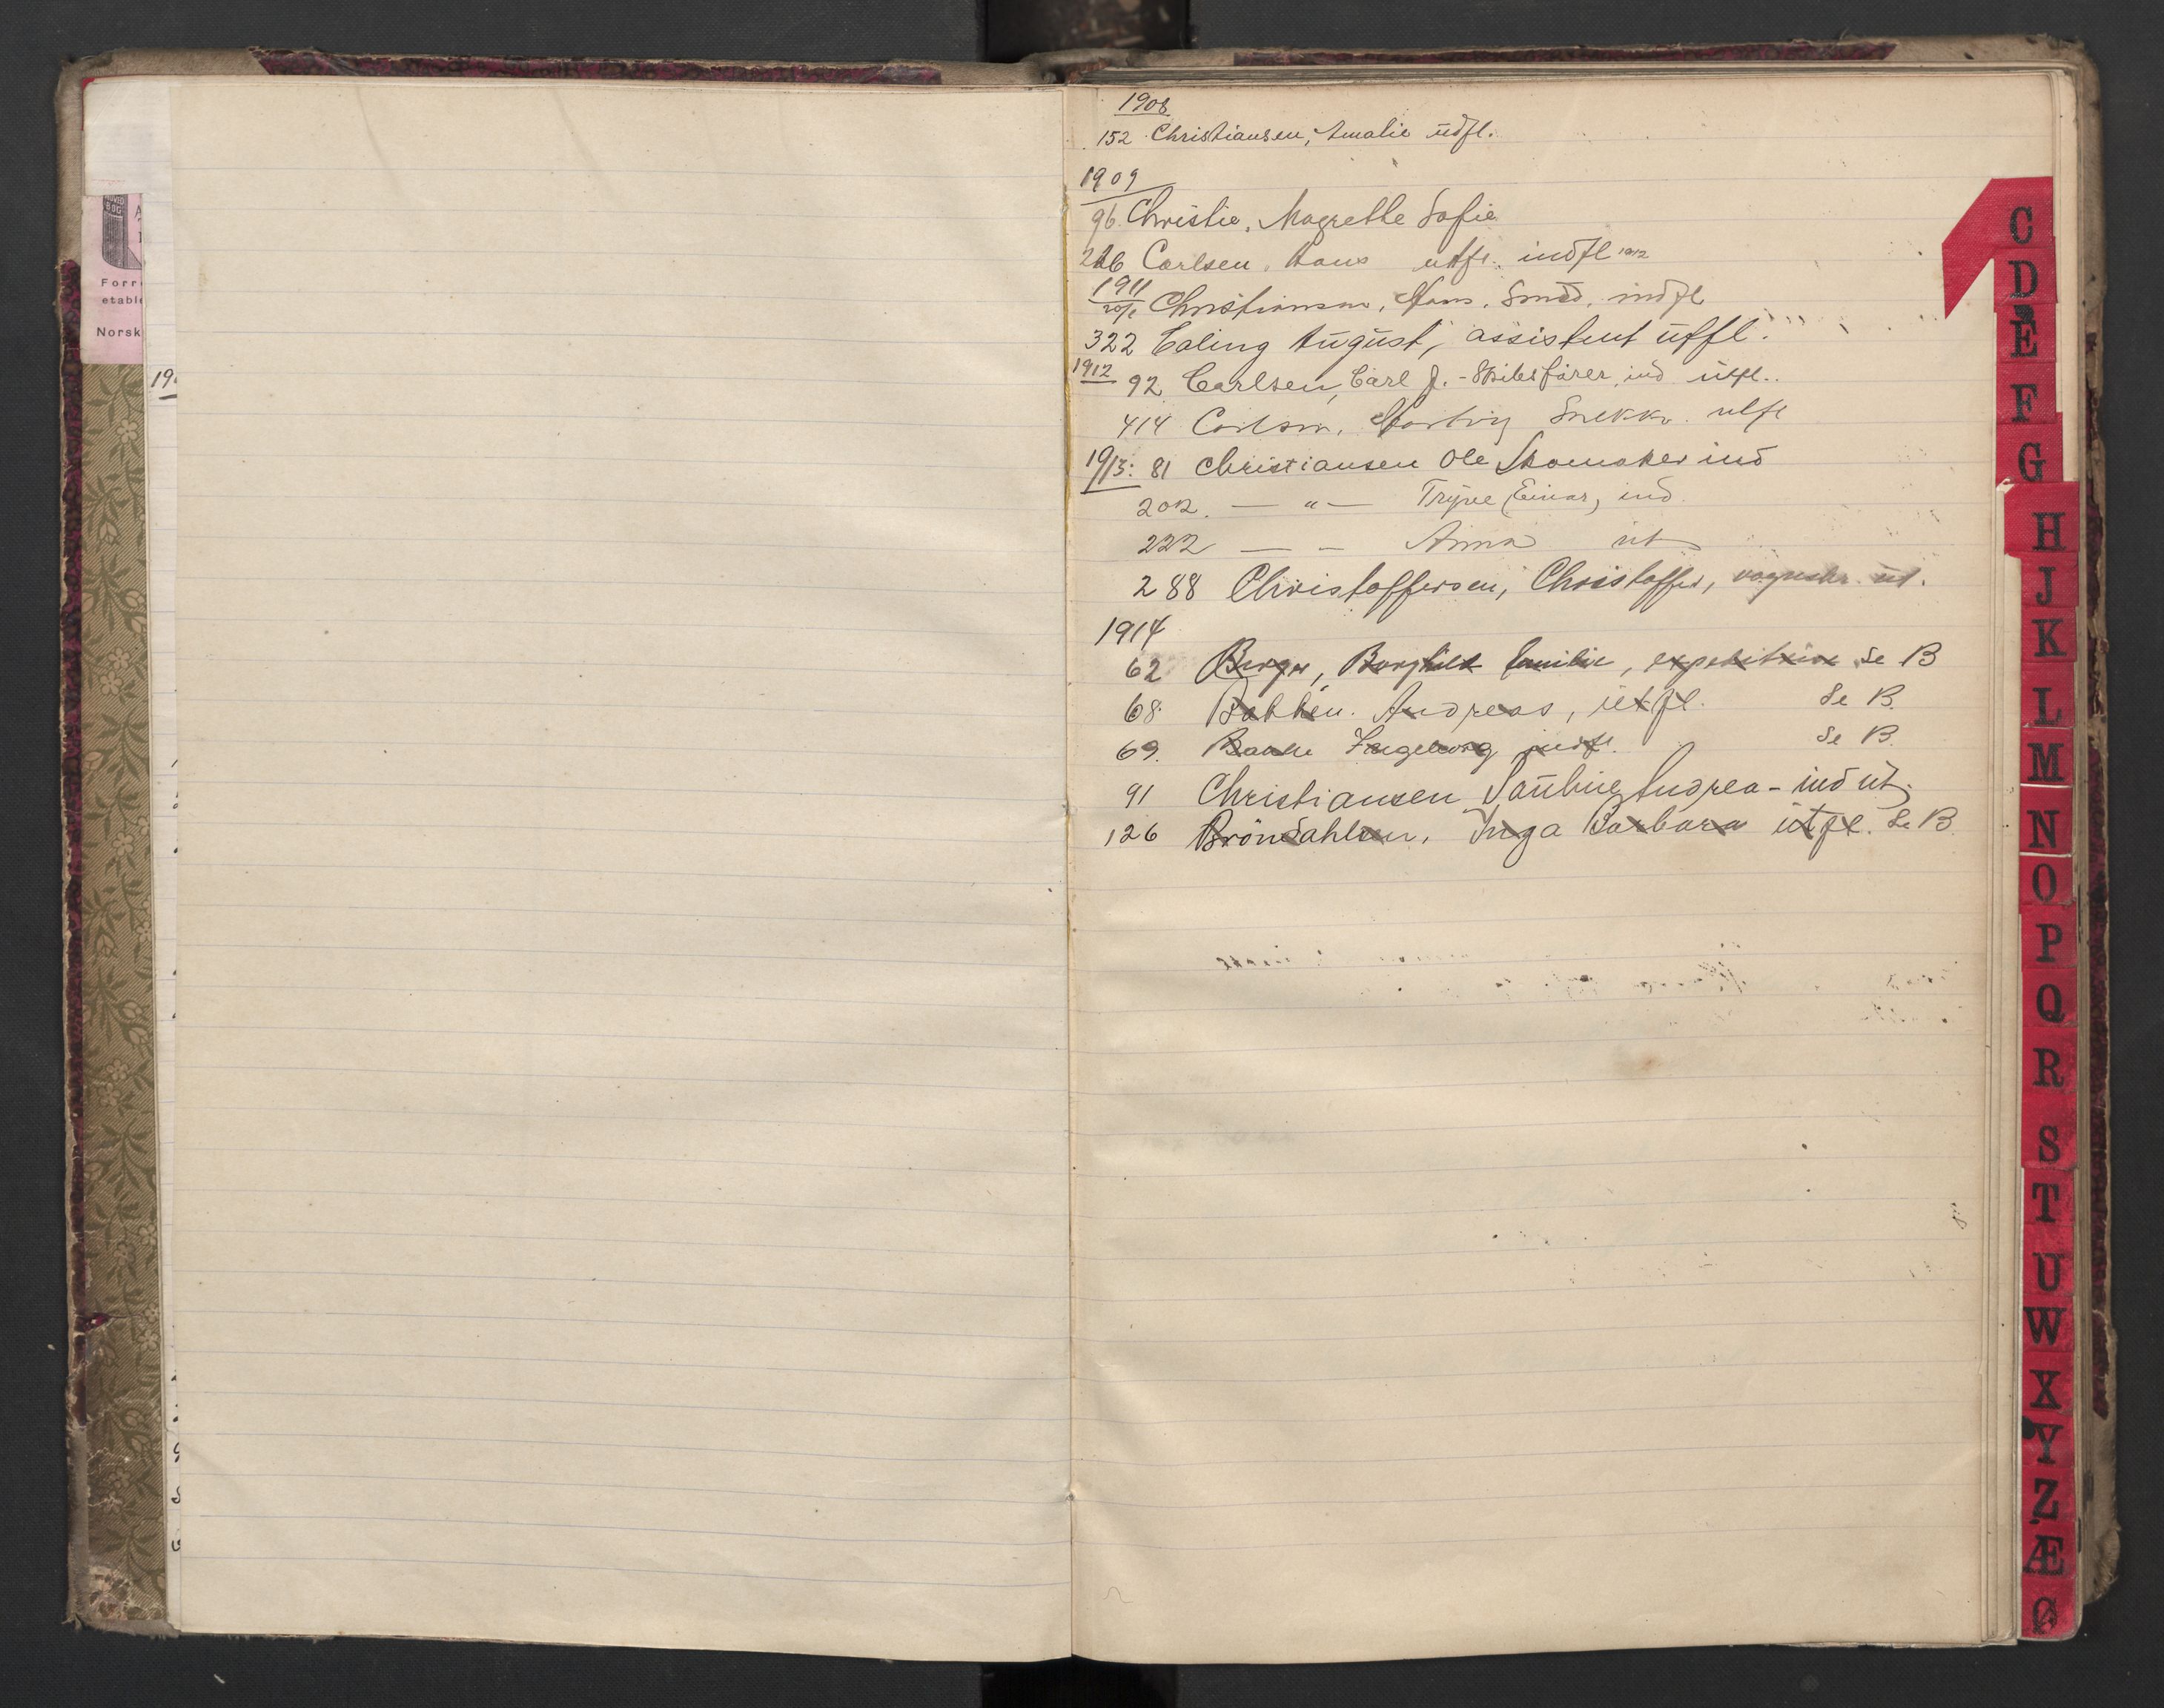 Forr
etable
Norsk
19
1908
152 Christiansen, Amalie udfl.
1909
96 Christie, Magrethe Sofie
Carlsen, Hans utfl. indfl 1912
1911
Christiansen, Hans. Smed, indfl
322 Ealing August, assistent utfl.
1912 92 Carlsen, Carl J. - Skibsfører ind utfl.
414 Carlsen, Hartvig Snekker utfl
1913: 81 Christiansen Ole Skomaker ind
202. — " — Trygve Einar, ind.
222 — - Anna ut
288 Christoffersen, Christoffer, ut.
1914
62 Berger, Borghild Emilie, Se B
68 Bakken. Andreas, utfl. Se B.
69. Ingeborg indfl. Se B.
91 Christiansen Pauline Andrea - ind ut.
126 Bröndahlsen, Inga Barbara utfl. Se B.
C
D
E
F
G
H
J
K
L
M
N
O
P
Q
R
S
T
U
W
X
Y
Z
Æ
Ø